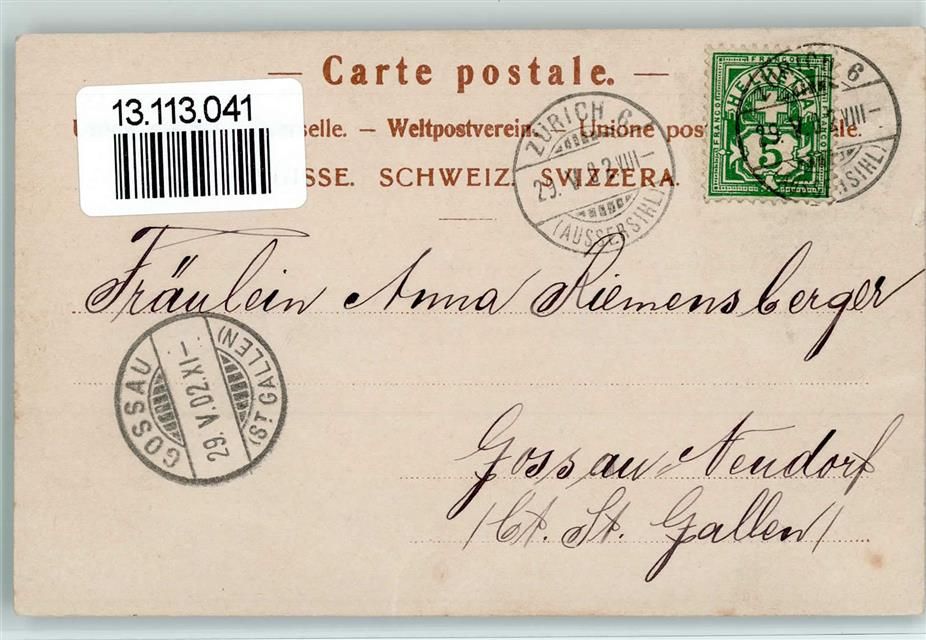 — Carte postale. —
13.113.041
selle. — Weltpostverein. — Unione post
SSE. SCHWEIZ. SVIZZERA.
ZÜRICH 6
29. V. 02. VIII—
(AUSSERSIHL)
FRANCO
HELVETIA
FRANCO
FRANCO
5
6
VIII—
Fräulein Anna Riemensberger
GOSSAU
29. V. 02. XI—
(ST GALLEN)
Gossau Neudorf
/Ct. St. Gallen/